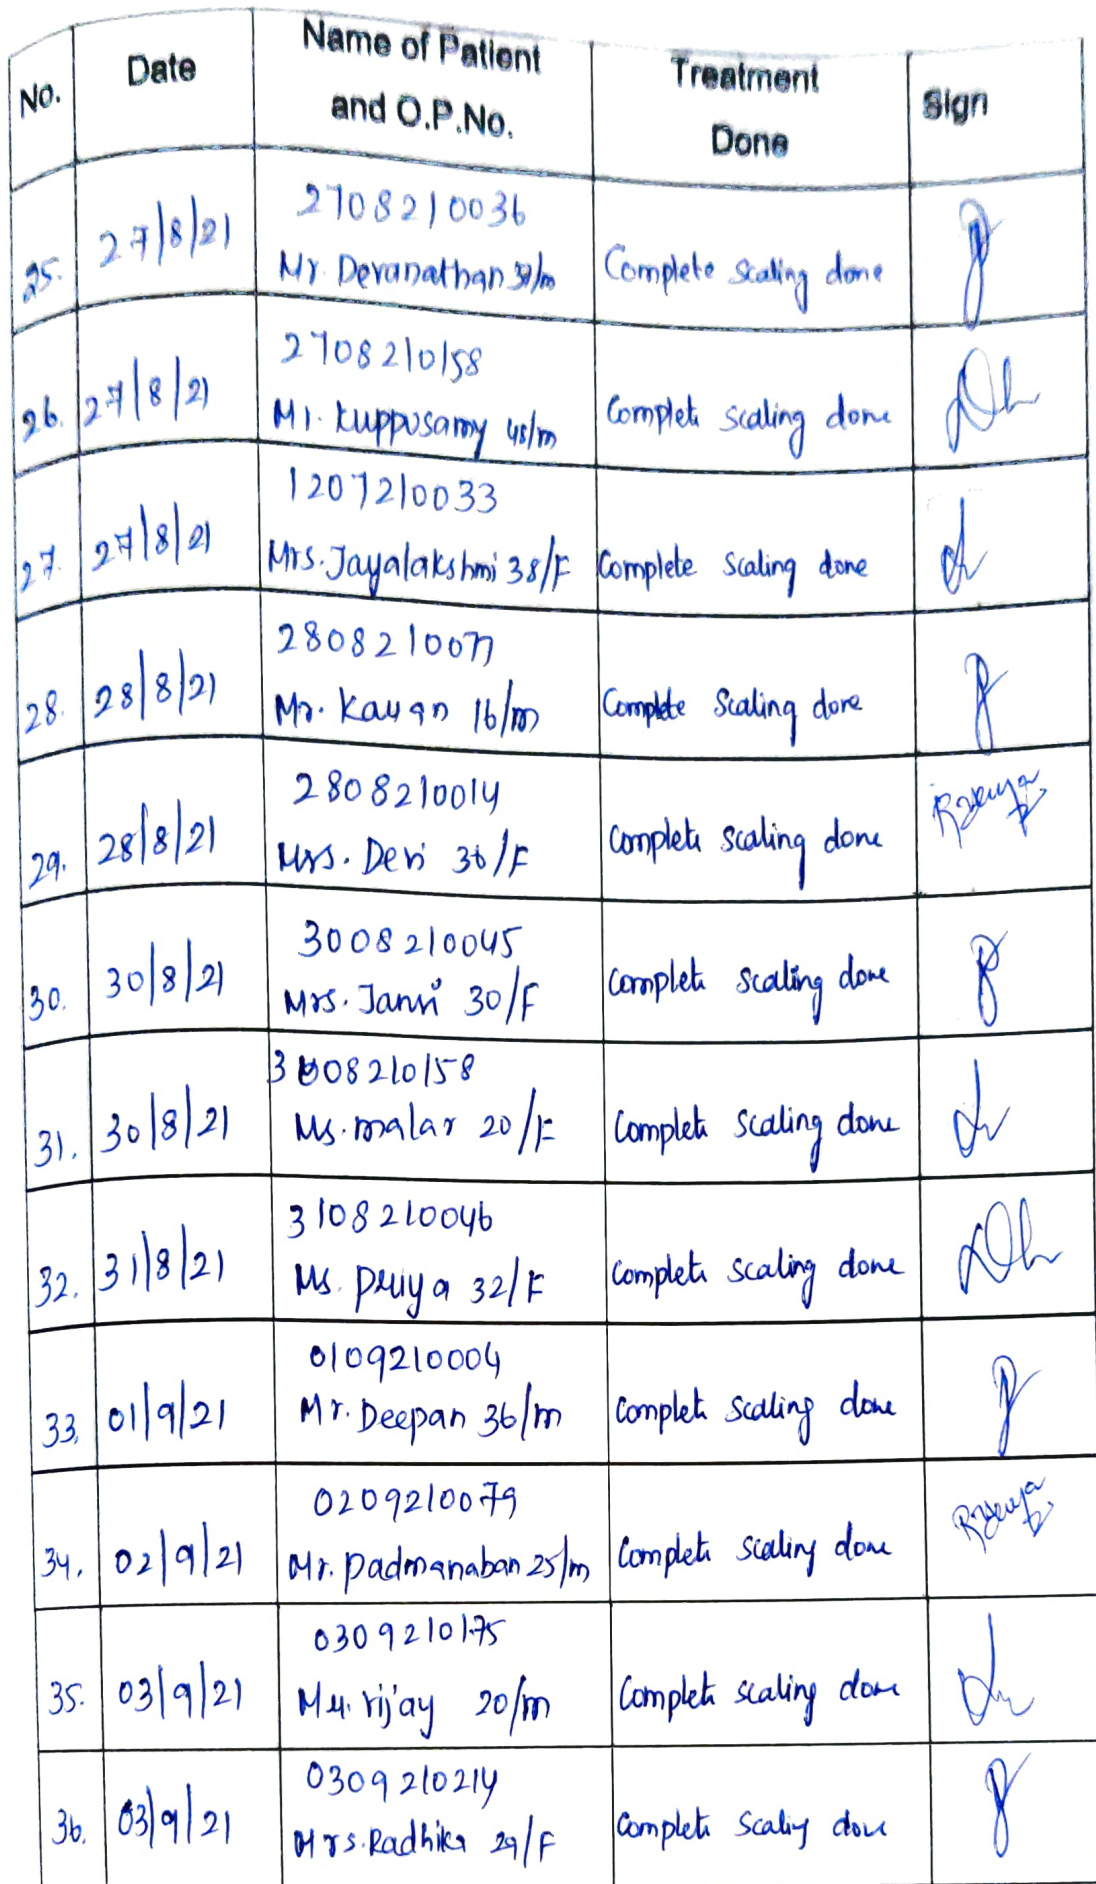 No. Date Name of Patient and O.P.No. Treatment Done Sign
25. 27/8/21 2708210036
Mr. Devanathan /m Complete scaling done
26. 27/8/21 2708210158
Mr. Kuppusamy 48/m Complete scaling done
27. 27/8/21 1207210033
Mrs. Jayalakshmi 38/F Complete scaling done
28. 28/8/21 2808210077
Mr. 16/m Complete Scaling done
29. 28/8/21 2808210014
Mrs. Devi 36/F Complete scaling done
30. 30/8/21 3008210045
Mrs. 30/F Complete scaling done
31. 30/8/21 3008210158
Ms. malar 20/F Complete scaling done
32. 31/8/21 3108210046
Ms. Priya 32/F Complete scaling done
33. 01/9/21 0109210004
Mr. Deepan 36/m Complete scaling done
34. 02/9/21 0209210079
Mr. Padmanaban 25/m Complete scaling done
35. 03/9/21 0309210175
Mr. vijay 20/m Complete scaling done
36. 03/9/21 0309210214
Mrs. Radhika 29/F Complete scaling done